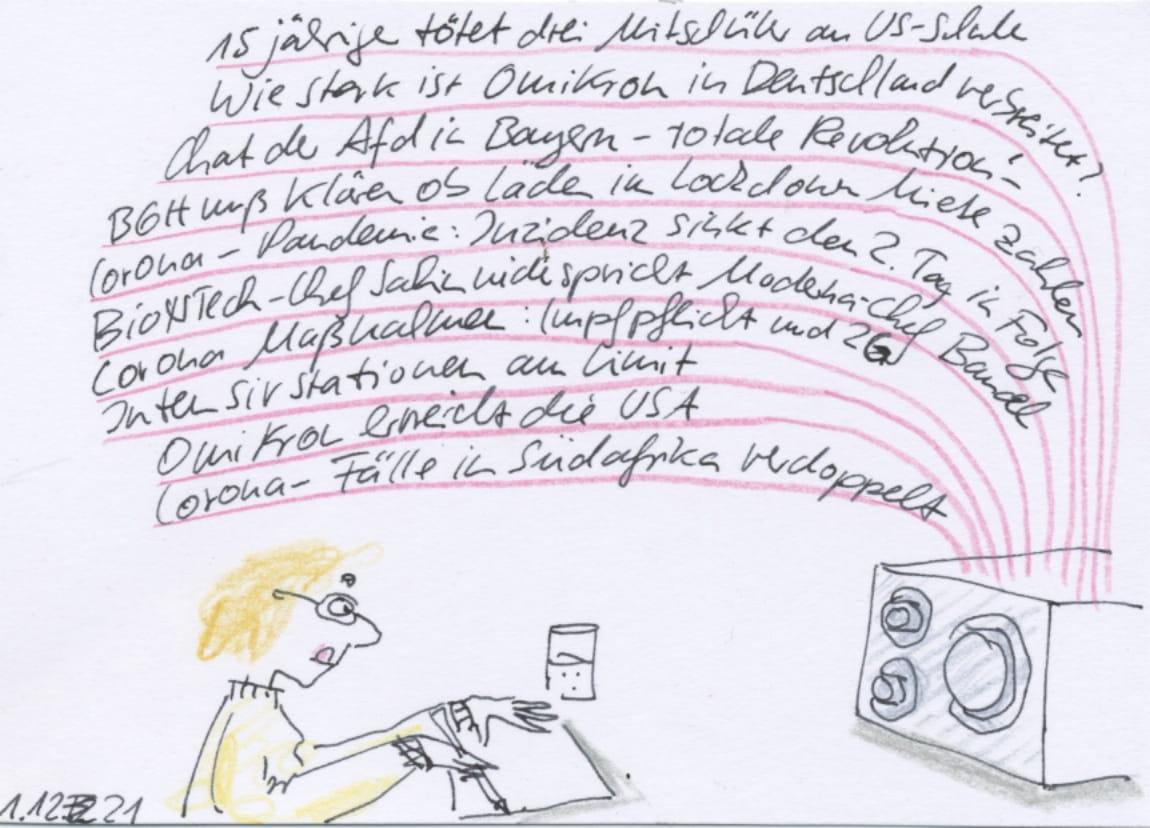 15 jährige tötet drei Mitschüler an US-Schule
Wie stark ist Omikron in Deutschland verbreitet?
Chat der Afd in Bayern - totale Revolution! -
BGH muß klären ob Läden im Lockdown Miete zahlen
Corona - Pandemie: Inzidenz sinkt den 2. Tag in Folge
BioNTech-Chef Sahin widerspricht Moderna-Chef Bancel
Corona Maßnahmen: Impfpflicht und 2G
Intensivstationen am Limit
Omikron erreicht die USA
Corona- Fälle in Südafrika verdoppelt
1.12.21